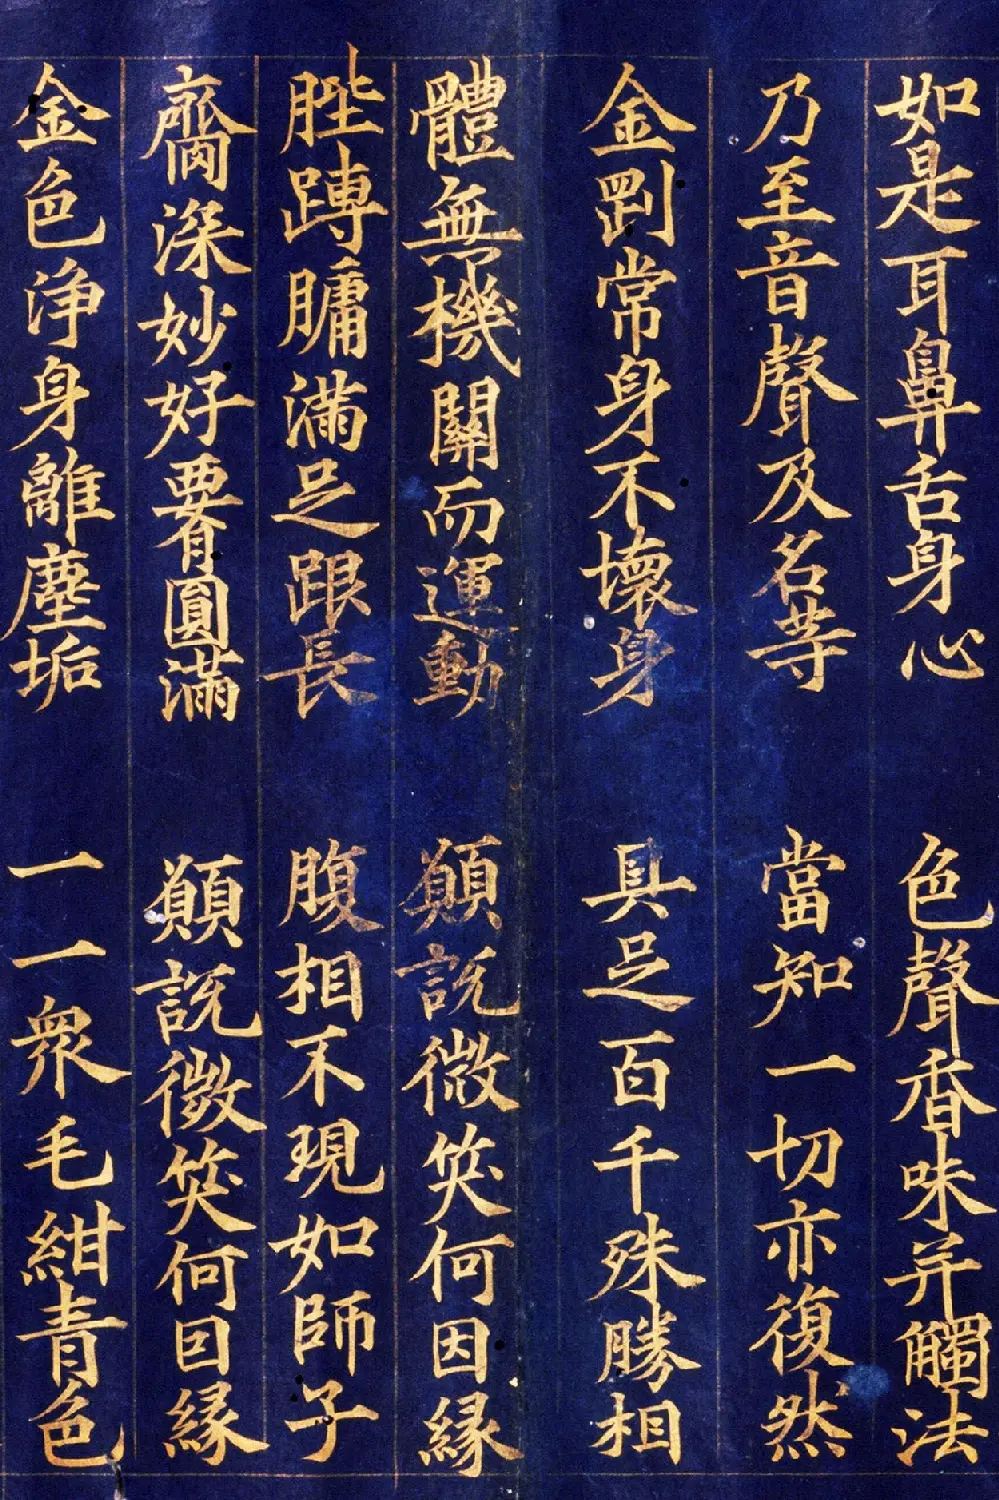 如是耳鼻舌身心 色聲香味并觸法
乃至音聲及名等 當知一切亦復然
金剛常身不壞身 具足百千殊勝相
體無機關而運動 願說微笑何因緣
䏶踹膊滿足跟長 腹相不現如師子
齋深妙好要有圓滿 願說微笑何因緣
金色淨身離塵垢 一一眾毛紺青色